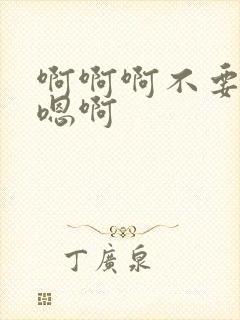 啊啊啊不要
嗯啊
丁廣泉